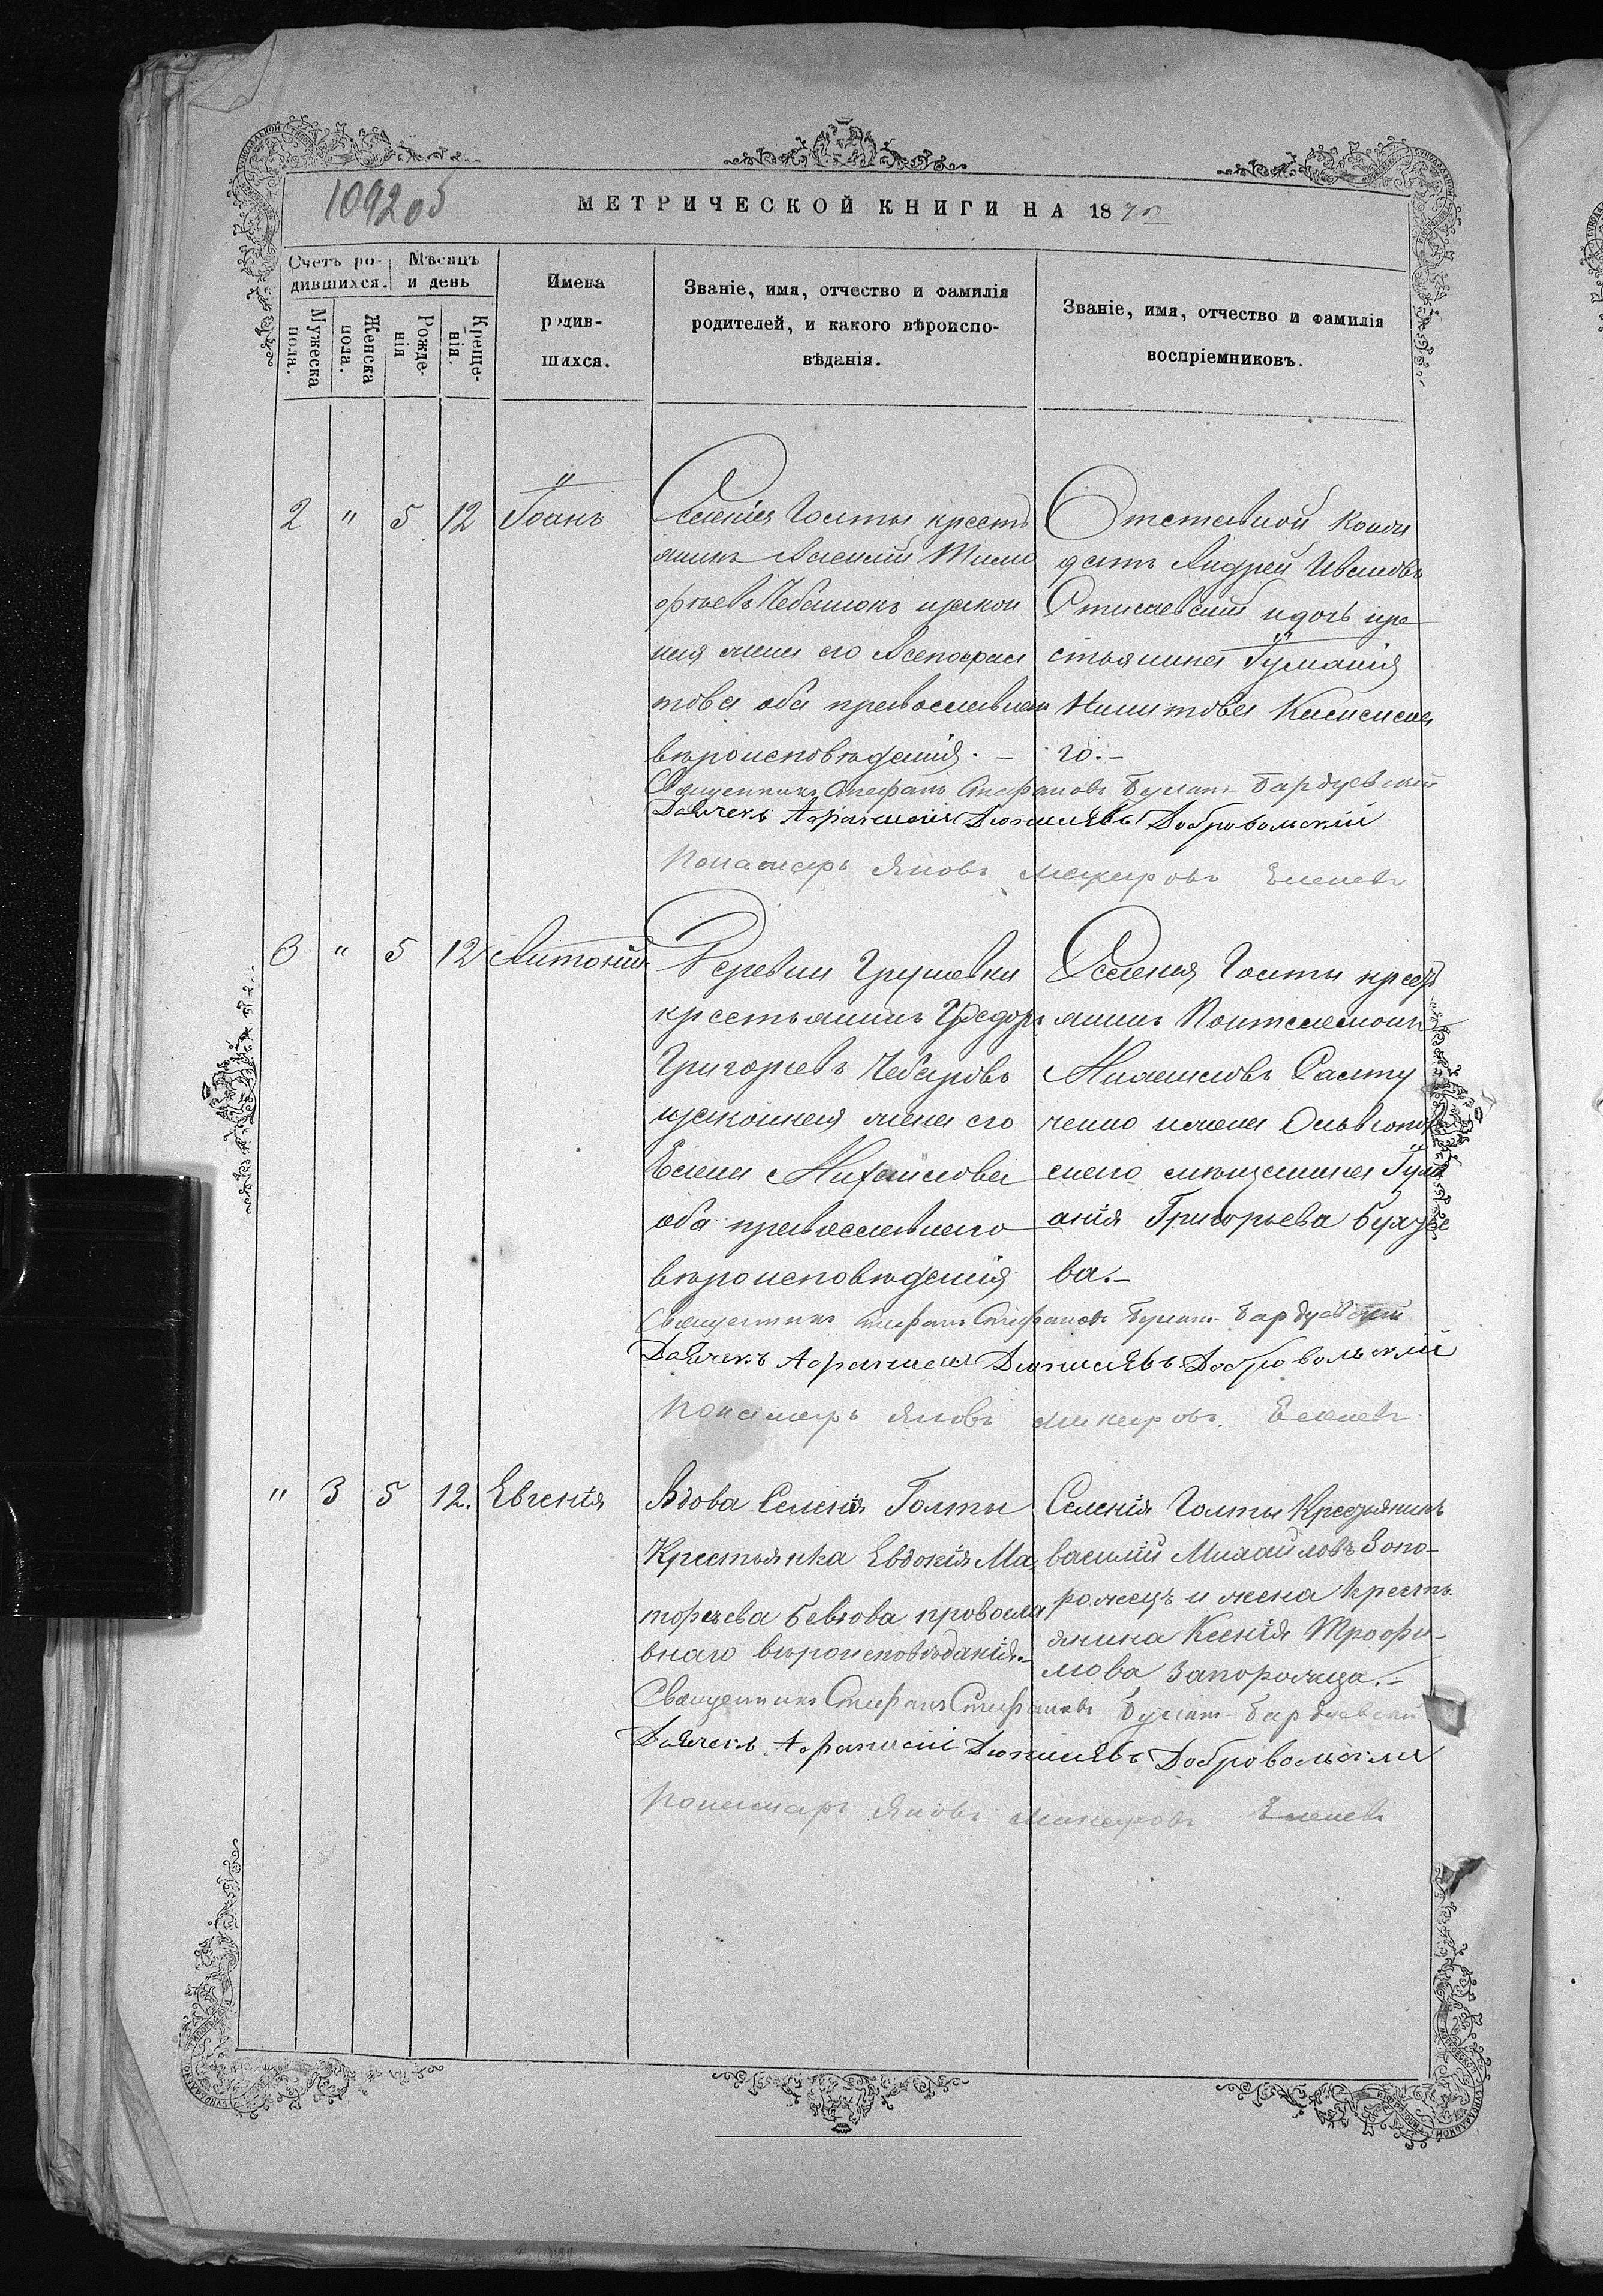 1092 об
МЕТРИЧЕСКОЙ КНИГИ НА 1870
Счетъ ро-
дившихся.
Мѣсяцъ
и день
Мужеска
пола.
Женска
пола.
Рожде-
нія
Креще-
нія.
Имена
родив-
шихся.
Званіе, имя, отчество и фамилія
родителей, и какого вѣроиспо-
вѣданія.
Званіе, имя, отчество и фамилія
воспріемниковъ.
2 " 5 12 Іоанъ
Селенія Голты кресть
янинъ Алексій Тимо
фѣевъ Чебанюкъ изакон
ная жена его Ксенофон
това оба православнаго
вѣроисповѣданія. –
Отставной Канди
датъ Андрей Ивановъ
и дочь кре
стьянина Іуліанія
Никитова
го. –
Священникъ Стефанъ Стефановъ Булат-Бардуевскій
Дьячекъ Афанасій Добровольскій
Понамарь Яковъ Макаровъ Еленевъ
3 " 5 12 Антоній
Деревни Грушевки
крестьянинъ Ѳедоръ
Григорьевъ Чебаровъ
изаконная жена его
Елена Михаилова
оба православнаго
вѣроисповѣданія
Селенія Голты крест
янинъ Понтелемонъ
Михаиловъ
ченко
скаго мѣщанина Іули
анія Григорьева
ва. –
Священникъ Стефанъ Стефановъ Булат-Бардуевскій
Дьячекъ Афанасій Добровольскій
Понамарь Яковъ Макаровъ Еленевъ
" 3 5 12. Евгенія
Вдова Селенія Голты
Крестьянка Евдокія Ма
торѣева Бевзова провосла
внаго вѣроисповѣданія. –
Селенія Голты Крестьянинъ
василій Михайловъ Запо-
рожецъ и жена Кресть
янина Ксенія Трофи-
мова Запорожца. –
Священникъ Стефанъ Стефановъ Булат-Бардуевскій
Дьячекъ Афанасій Добровольскій
Понамарь Яковъ Макаровъ Еленевъ